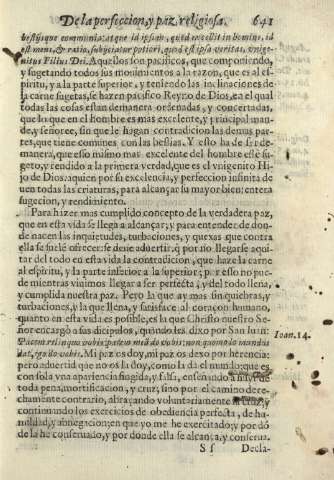 De la perfeccion, y paz religiosa. 641
bestijsque communia: atque id ipsum, quod excellit in homine, id
est mens, & ratio, subijciatur potiori, quod est ipsa veritas, vnige-
nitus Filius Dei. Aquellos son pacificos, que componiendo,
y sugetando todos sus mouimientos a la razon, que es al es-
piritu, y a la parte superior, y teniendo las inclinaciones de
la carne sugetas, se hazen pacifico Reyno de Dios, en el qual
todas las cosas estan demanera ordenadas, y concertadas,
que lo que en el hombre es mas excelente, y principal man-
de, y señoree, sin que le hagan contradicion las demas par-
tes, que tiene comunes con las bestias. Y esto ha de ser de-
manera, que esso mismo mas excelente del hombre esté su-
geto, y rendido a la primera verdad, que es el vnigenito Hi-
jo de Dios: a quien por su excelencia, y perfeccion infinita de
uen todas las criaturas, para alcançar su mayor bien: entera
sugecion, y rendimiento.
Para hazer mas cumplido concepto de la verdadera paz,
que en esta vida se llega a alcançar; y para entender de don-
de nacen las inquietudes, turbaciones, y quexas que contra
ella se suelē ofrecer: se deue aduertir, q̃ por no llegarse a qui-
tar del todo en esta vida la contradicion, que haze la carne
al espiritu, y la parte inferior a la superior; por esso no pue-
de mientras viuimos llegar a ser perfecta, y del todo llena,
y cumplida nuestra paz. Pero la que ay mas sin quiebras, y
turbaciones, y la que llena, y satisface al coraçon humano,
quanto en esta vida es posible, es la que Christo nuestro Se-
ñor encargò a sus dicipulos, quando les dixo por San Iuan:
Pacem relinquo vobis: pacem meā do vobis: non quomodo mundus
dat, ego do vobis. Mi paz os doy, mi paz os dexo por herencia:
pero aduertid que no os la doy, como la dà el mundo; que es
con sola vna apariencia fingida, y falsa, enseñando a huyr de
toda pena, mortificacion, y cruz, sino por el camino dere-
chamente contrario, abraçando voluntariamente la cruz, y
continuando los exercicios de obediencia perfecta, de hu-
mildad, y abnegacion; en que yo me he exercitado; y por dō
de la he conseruado, y por donde ella se alcança, y conserua.
Ioan. 14.
S s Decla-